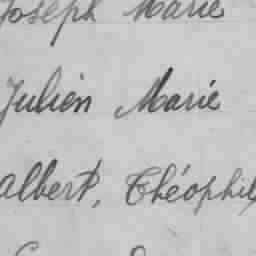 Joseph Marie
Julien Marie
albert, Théophile